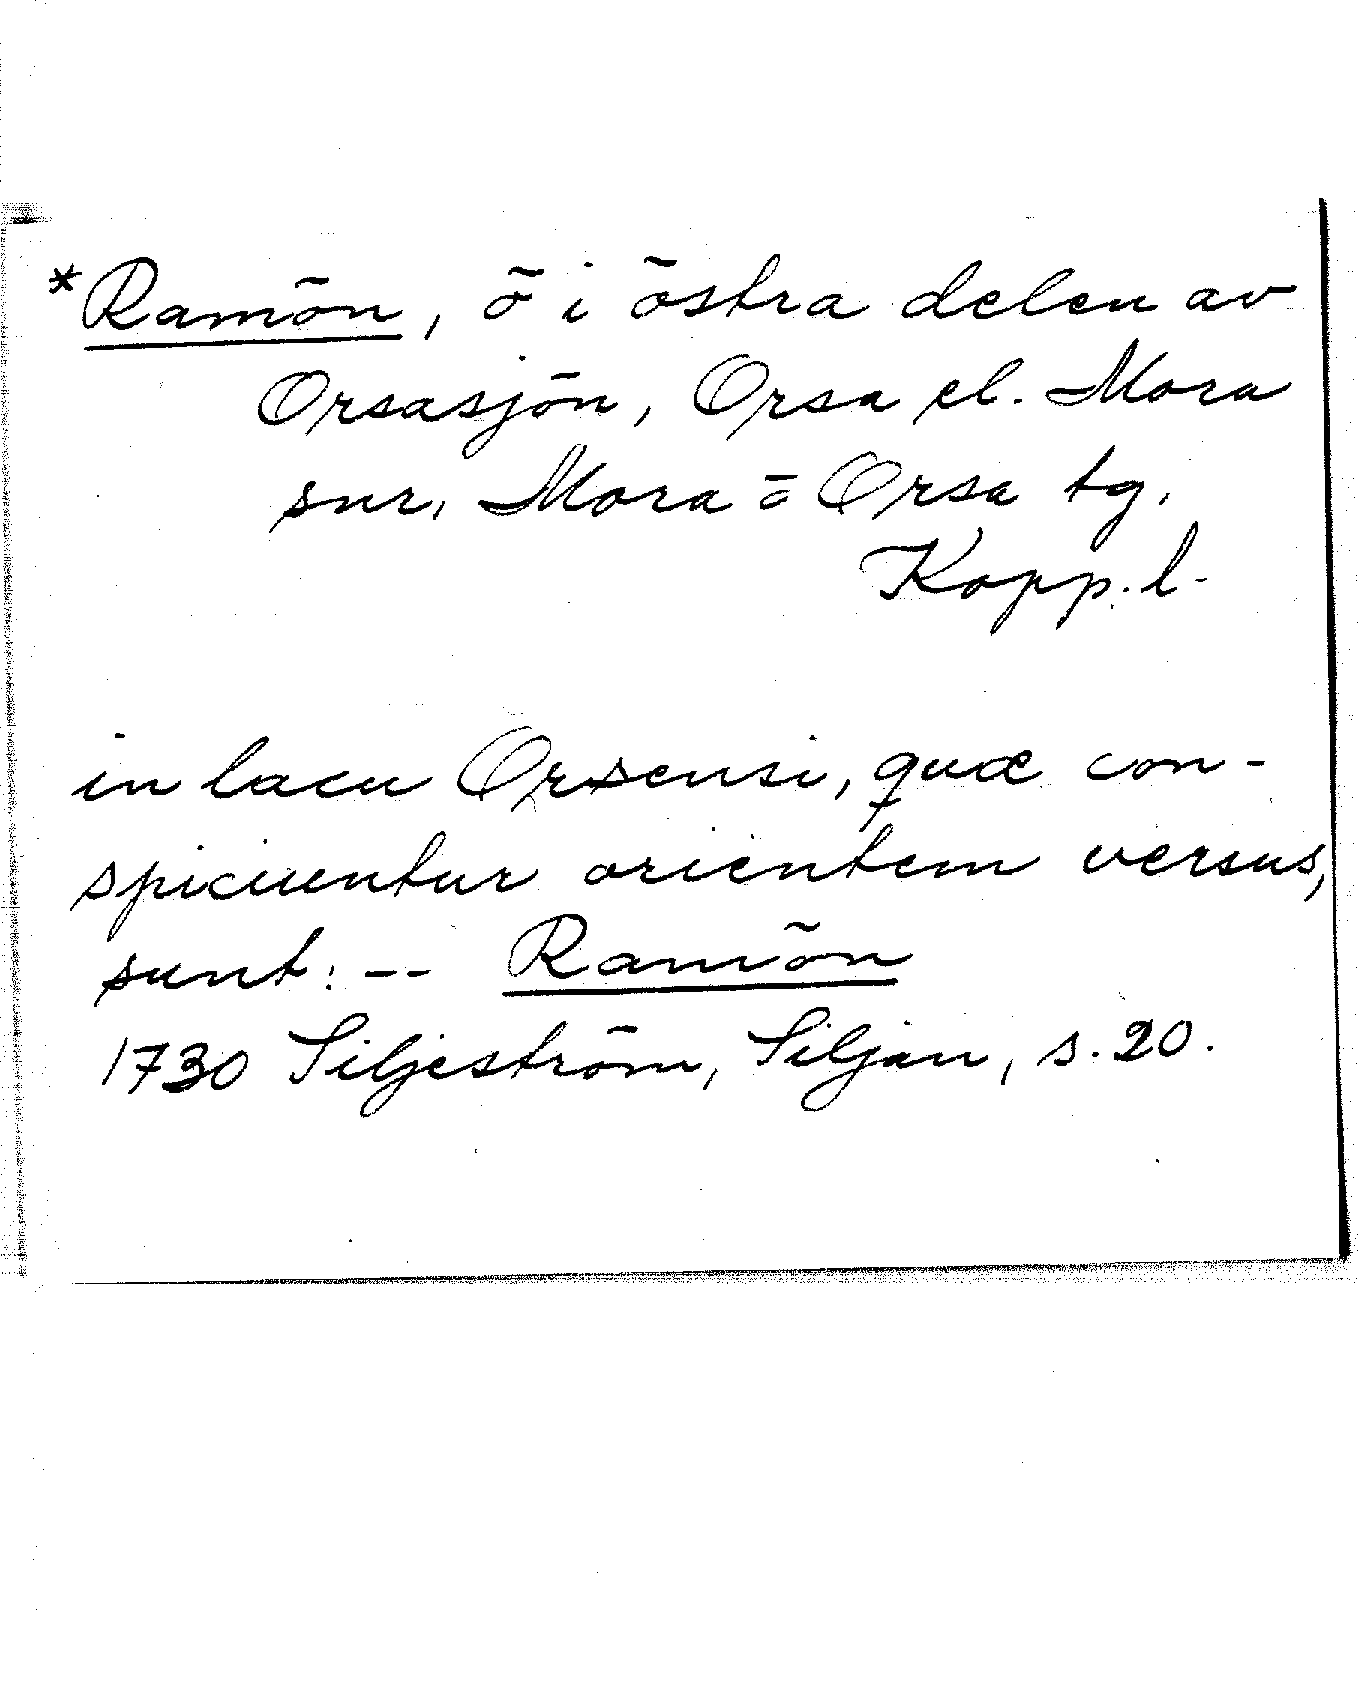 *Ramön, ö i östra delen av
Orsasjön, Orsa el. Mora
snr, Mora o Orsa tg.
Kopp. l.
in lacu Orsensi, quæ con-
spiciuntur orientem versus,
sunt: -- Ramön
1730 Siljeström, Siljan, s. 20.